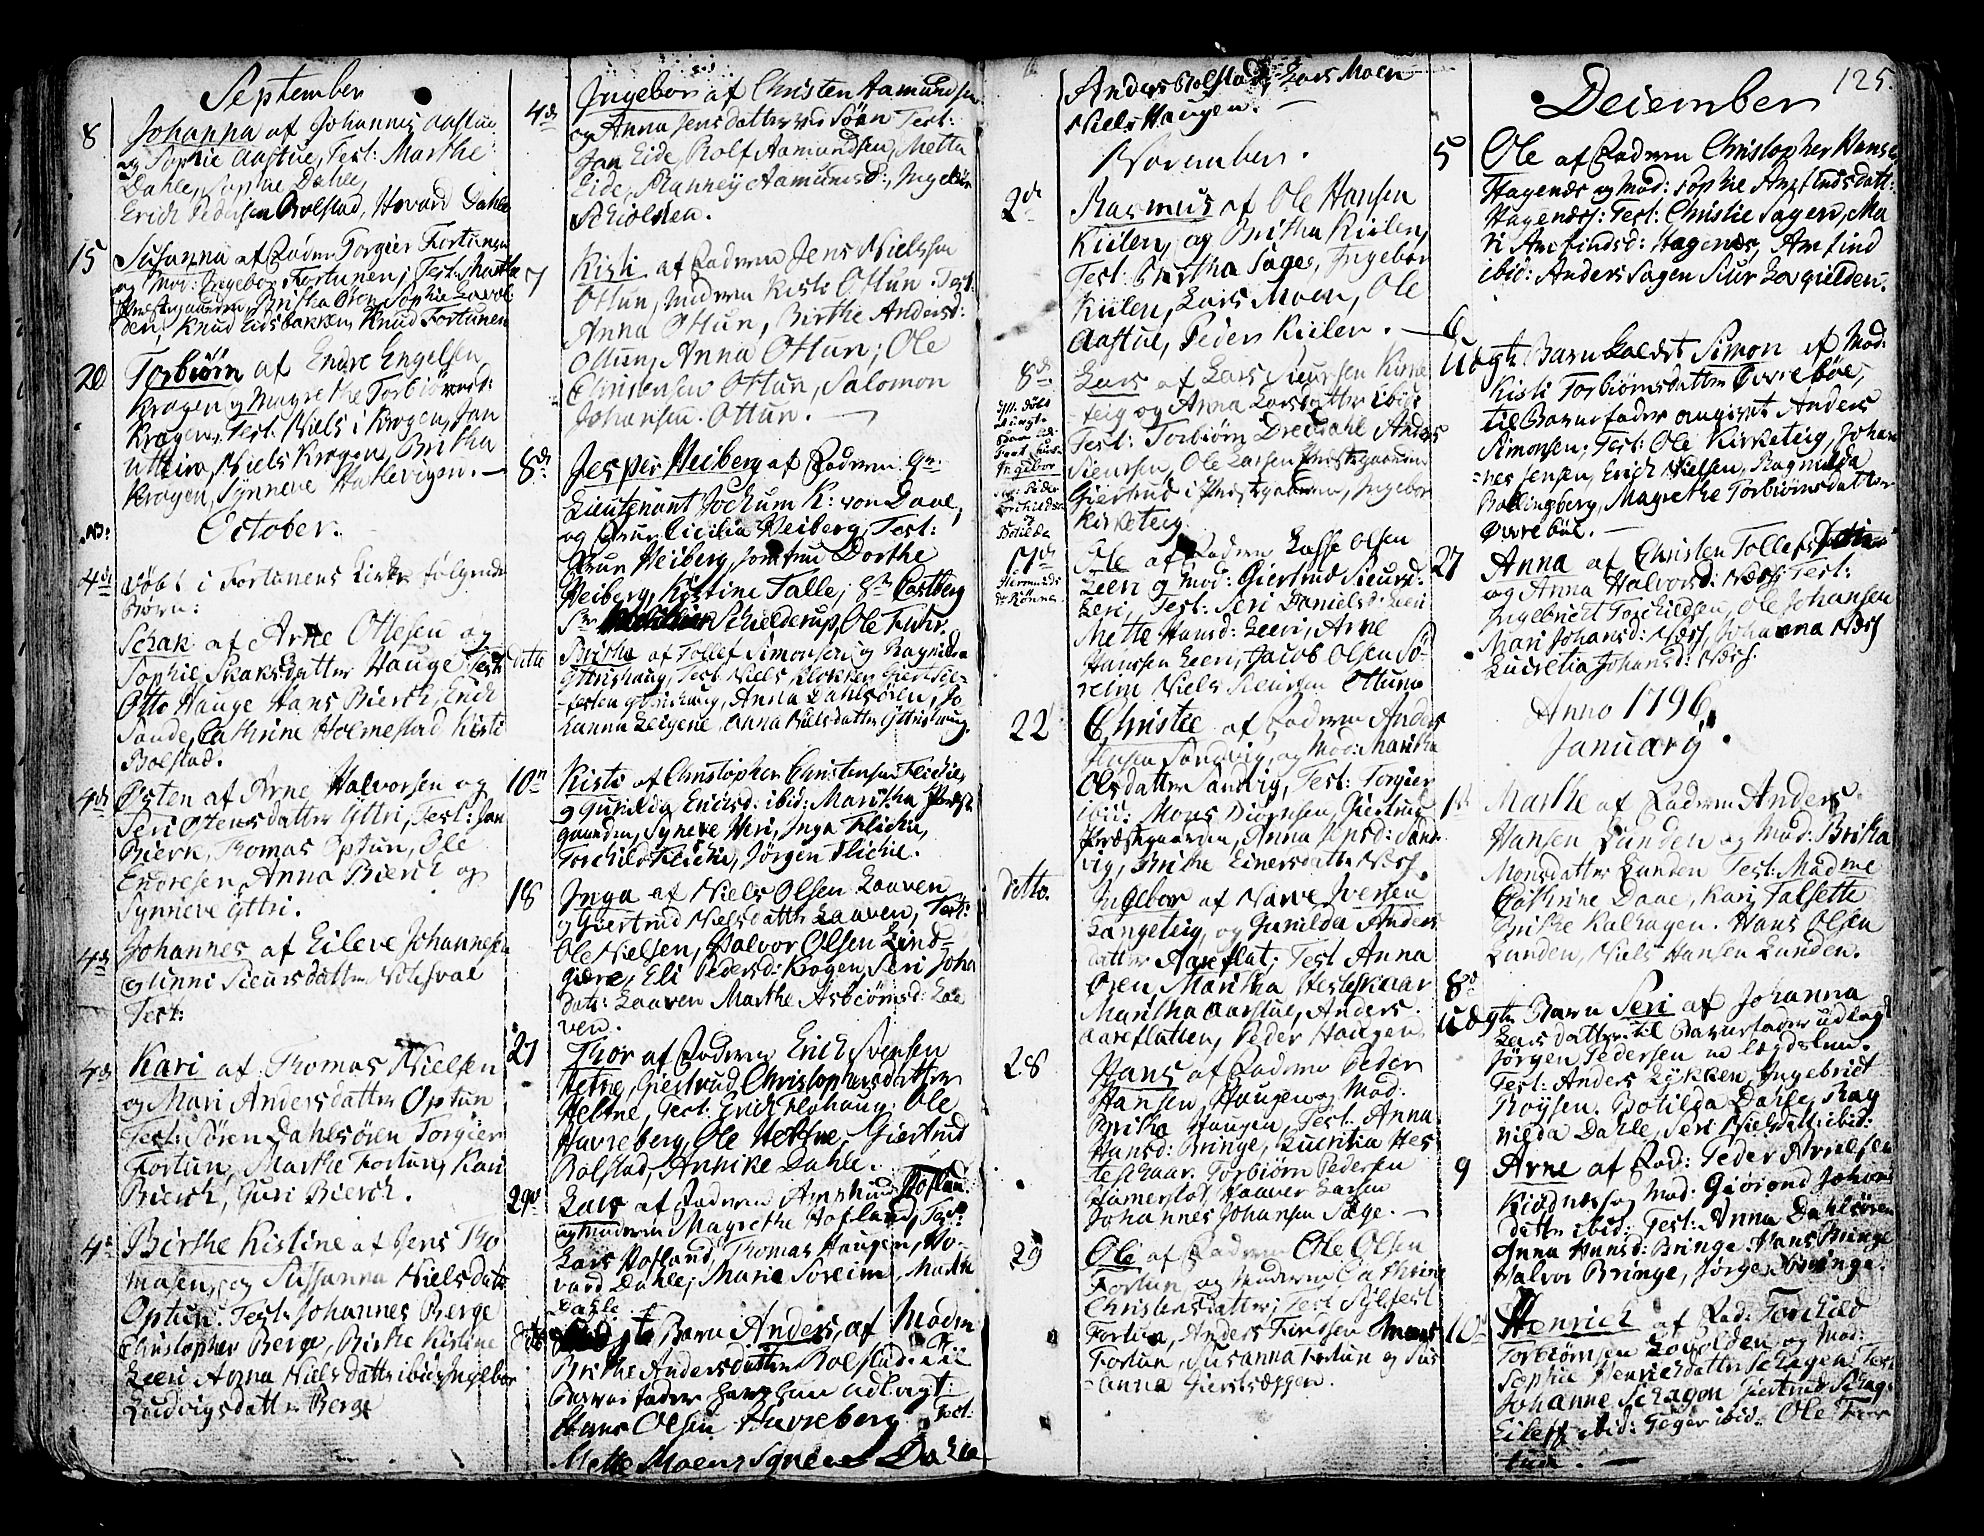 September
8 Johanna af Johannes Aastue
og Sophie Aastue, Test: Marthe
Dahle, Sophie Dahle,
Erich Pedersen Bolstad, Hovard Dahle
15 Susanna af Fadren Torgier Fortunen
og Mod: Ingebor Fortunen; Test: Martha
Præstegaarden, Britha Øren, Sophie
den, Knud Eidsbakken, Knud Fortunen
20 Torbiørn af Endre Engelsen
Krogen og Magrethe Torbiørnsd:
Krogen, Test. Niels i Krogen, Jan
Krogen, Britha
Niels Krogen,
Krogen, Synneve
October.
NB:
4de Døbt i Fortunens Kirke følgende
Børn:
Schak af Arne Ottesen og
Sophie Skaksdatter Hauge Test:
Otto Hauge Hans Bierch, Erich
Sande, Cathrine Holmestad Kisti
Bolstad.
4de Østen af Arne Halvorsen og
Seri Ostensdatter Yttri, Test: Jan
Bierk, Thomas Optun, Ole
Endresen, Anna Bierch og
Synneve Yttri.
4de Johannes af Eileve Johannesen
og Unni Sieursdatter
Test:
4de Kari af Thomas Nielsen
og Mari Andersdatter Optun
Test: Søren Dahlsøren Torgier
Fortun, Marthe Fortun, Kari
Bierch, Guri Bierch.
4de Birthe Kistine af Jens Tho
masen, og Sussanna Nielsdatt
Optun. Test. Johannes Berge
Christopher Berge, Birthe Kistine
Leeri Anna Nielsdatt ibid: Ingebor
Ludvigsdatter Berge
4de Ingebor af Christen Aamundsen
og Anna Jensdatter Test:
Jan Eide, Rolf Aamundsen, Mette
Eide, Aamundsd:, Ingebor
Schiolden.
7 Kisti af Fadren Jens Nielssen
Ottun, Modren Kisti Ottun. Test
Anna Ottun, Birthe Andersd:
Ottun, Anna Ottun; Ole
Christensen Ottun, Salomon
Johansen Ottun.
8de Jesper Heiberg af Fadren Hr.
Lieutenant Jochum K: von Daae,
og Frue Cicilia Heiberg, Test:
Frue Heiberg, Jomfrue Dorthe
Heiberg, Kistine Falle, Hr Castberg
Sr Schielderup, Ole Fuhr.
ditto Brithe af Tollef Simonsen og Ragnilda
Yttrishaug, Test: Niels Klokker
Yttrishaug, Anna Dahlsøren, Jo
hanna Anna Nielsdatter Yttrishaug.
10de Kisti af Christopher Christensen Flickie
og Gunilda Ericsd: ibid: Maritha Præste
gaarden, Syneve Heri, Inga Flickie,
Torchild Flickie, Jørgen Flickie.
18 Inga af Niels Olsen Laaven
og Giertrud Nielsdatter Laaven, Test:
Ole Nielsen, Halvor Olsen Lind
giære, Eli Pedersd: Krogen, Seri Joha
datt: Laaven Marthe Asbiømsd: Laa
ven.
27 Thor af Fadren Erich Svensen
Hetne, Giertrud Christophersdatter
Heltne, Test: Erich Flohaug, Ole
Havreberg, Ole Heltne, Giertrud
Bolstad, Annike Dahle.
29de Lars af Fadren Amshund Hofland.
og modren Magrethe Hofland, Test:
Lars Hofland, Thomas Haugen, Ho
vard Dahle, Marie Soreim, Marthe
Dahle.
ditto gte Barn Anders af Modren
Brithe Andersdatter Bolstad til
Barnefader har hun udlagt
Hans Olsen Havreberg Test:
Mette Moen, Dahle
Anders Bolstad, Lars Moen
Niels Haugen.
November.
2de Rasmus af Ole Hansen
Kiilen, og Britha Kiilen,
Test: Britha Sage, Ingebor
Kiilen, Lars Moen, Ole
Aastue, Peder Kiilen.
8de Lars af Lars Sieursen Kirke
teig og Anna Larsdatter ibid:
Test: Torbiørn Dredsdahl Anders
Sieursen, Ole Larsen Præstegaarden
Giertrud i Præstegaarden, Ingebor
Kirketeig.
Ingebor
Botilda
11de Ole af Fadren Lasse Olsen
Leeri og Mod: Giertrud Sieursd:
Leri, Test: Seri Danielsd: Leeri
Mette Hansd: Leeri, Arne
Hanssen Leeri, Jacob Olsen Sø
reim Niels Sieursen Ottun
22 Christie af Fadren Anders
Sandvig, og Mod: Maritha
Olsdatter Sandvig, Test: Torgier
ibid: Mons Diørnsen, Giertrud
Præstegaarden, Anna Jensd: Sand
vig, Brithe Einersdatter Næss.
ditto. Ingebor af Narve Iversen
Langeteig, og Gunilda Anders
datter Aareflat; Test Anna
Øren Maritha Hesteskaar
Maritha Aastue, Anders
Aareflatten, Peder Haugen
28 Hans af Fadren Peder
Hansen Haugen og Mod:
Britha Haugen, Test: Anna
Hansd: Bringe, Lucritia Hes
teschaar. Torbiørn Pedersen
Hamersløv, Haaver Larsen
Johannes Johansen Sage.
29 Ole af Fadren Ole Olsen
Fortun og Modren Cathrine
Christensdatter; Test Sylfest
Fortun, Anders Mons
Fortun, Susanna Fortun og Sus
anna Giertsæggen.
125.
Deiember
5 Ole af Fadren Christopher Hansen
Hagenæs og Mod: Sophie Amfindsdatt:
Hagenæs: Test: Christie Sagen, Ma
ri Amfindsd: Hagenæs, Amfind
ibid: Anders Sagen Siur
6
Uægte Barn kaldet Simon af Mod:
Kisti Torbiørnsdatter Øvrebøe,
til Barnefader angivet Anders
Simonsen; Test: Ole Kirketeig, Johan
nes Jensen, Erich Nielsen, Ragnilda
Bollingberg, Magrethe Torbiørnsdatter
Øvrebøe.
27 Anna af Christen Tollefs
og Anna Halvorsd: Næss Test:
Ingebrict Torchildsen, Ole Johansen
Mari Johansd: Næss, Johanna Næss
Lucretia Johansd: Næss.
Anno 1796.
January.
1ste Marthe af Fadren Anders
Hansen Lunden og Mod: Britha
Monsdatter Lunden Test: Madme
Cathrine Daae, Kari Talsette
Brithe Kalhagen. Hans Olsen
Lunden, Niels Hansen Lunden.
8de
Uægte Barn Seri af Johanna
Larsdatter til Barnefader udlagt
Jørgen Pedersen
Test: Anders Lykken, Ingebrict
Røysen. Botilda Dahle, Rag
nilda Dahle, Seri Nielsdatt: ibid:
9 Arne af Fad: Peder Arnesen
Kiødnes og Mod: Giørond Johans
datter ibid: Test: Anna Dahlsøren
Anna Hansd: Bringe. Hans Bringe
Halvor Bringe, Jørgen Bringe.
10de Henrich af Fad: Torchild
Torbiørnsen og Mod:
Sophie Henrichdatter Schagen Test
Johanne Schagen Giertrud Schag
Eileff ibid: Toger ibid. Ole For
tun.